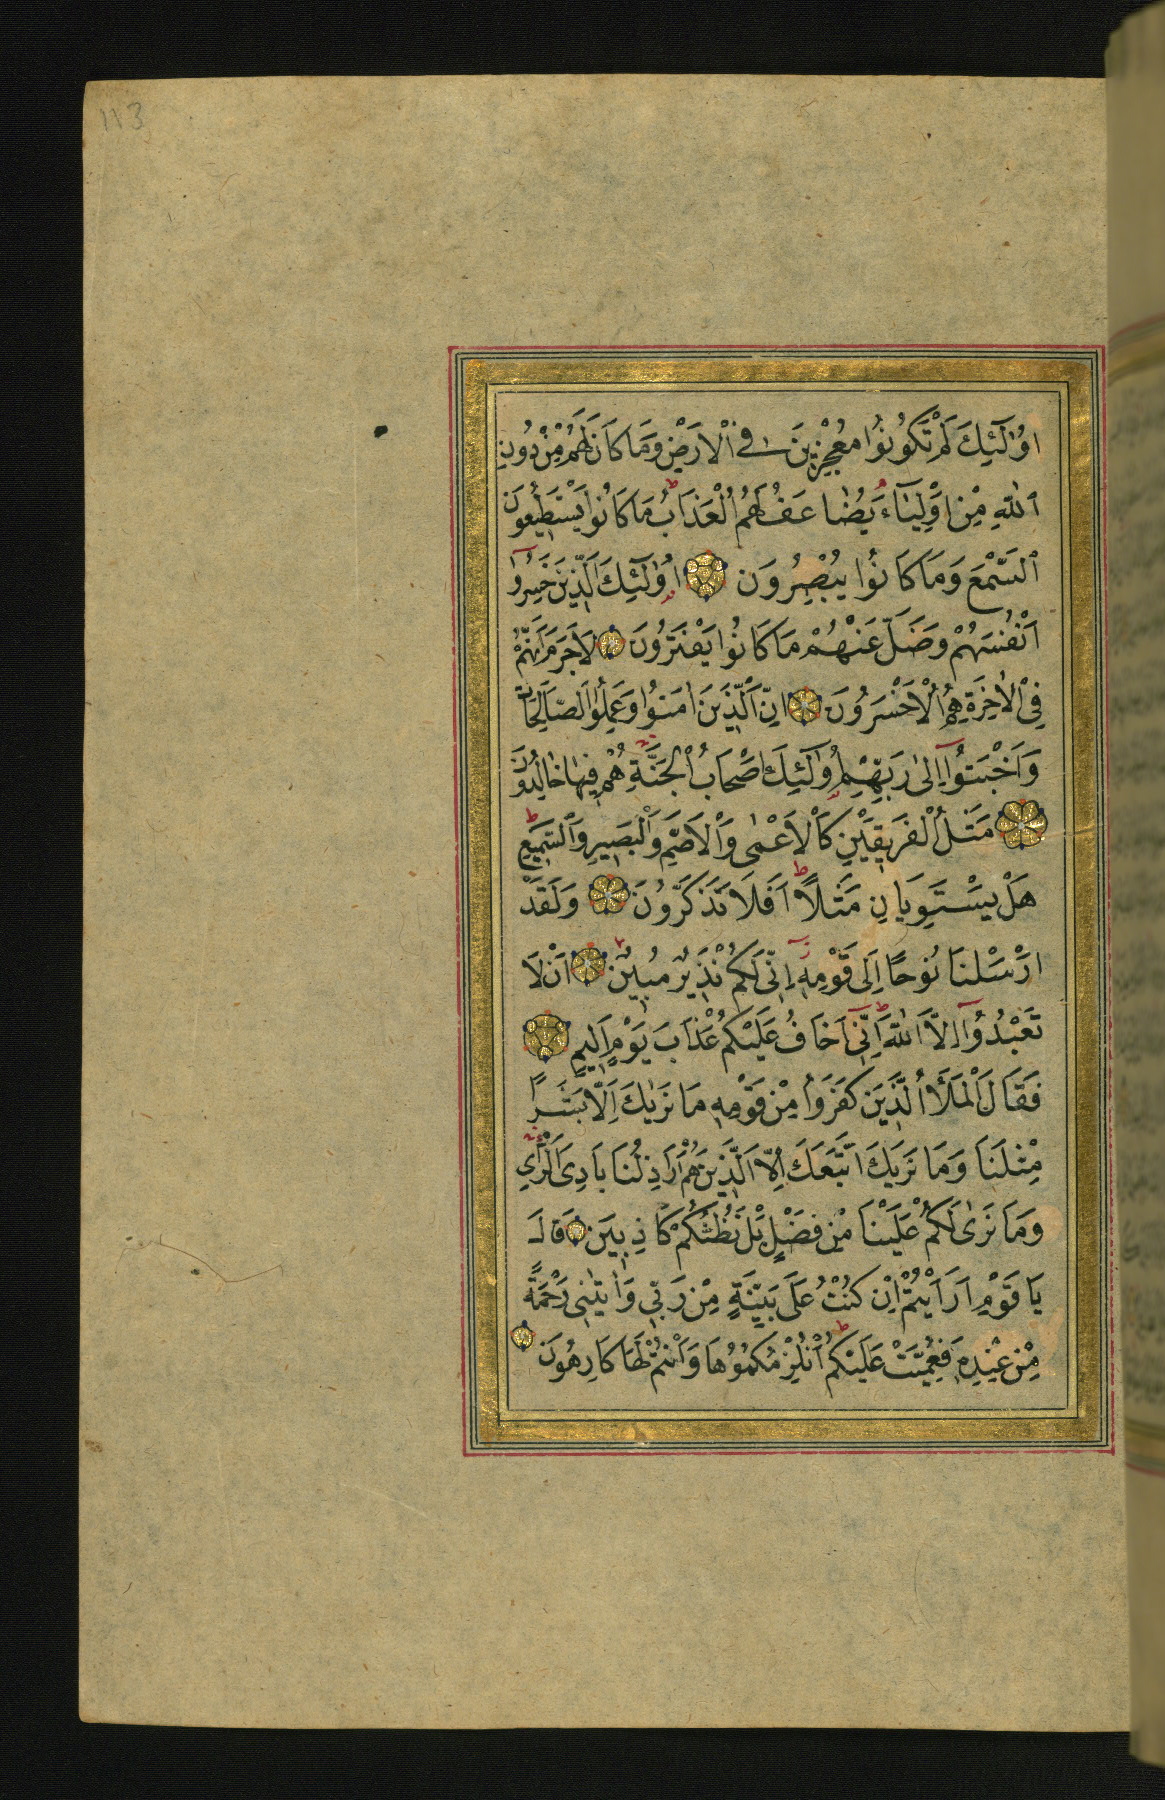 113
اُولٰٓئِكَ لَمْ يَكُونُوا مُعْجِزِينَ فِي الْاَرْضِ وَمَا كَانَ لَهُمْ مِنْ دُونِ
اللّٰهِ مِنْ اَوْلِيَٓاءَ يُضَاعَفُ لَهُمُ الْعَذَابُ مَا كَانُوا يَسْتَطِيعُونَ
السَّمْعَ وَمَا كَانُوا يُبْصِرُونَ اُولٰٓئِكَ الَّذِينَ خَسِرُوا
اَنْفُسَهُمْ وَضَلَّ عَنْهُمْ مَا كَانُوا يَفْتَرُونَ لَا جَرَمَ اَنَّهُمْ
فِي الْاٰخِرَةِ هُمُ الْاَخْسَرُونَ اِنَّ الَّذِينَ اٰمَنُوا وَعَمِلُوا الصَّالِحَاتِ
وَاَخْبَتُوٓا اِلٰى رَبِّهِمْ اُولٰٓئِكَ اَصْحَابُ الْجَنَّةِ هُمْ فِيهَا خَالِدُونَ
مَثَلُ الْفَرِيقَيْنِ كَالْاَعْمٰى وَالْاَصَمِّ وَالْبَصِيرِ وَالسَّمِيعِ
هَلْ يَسْتَوِيَانِ مَثَلًا اَفَلَا تَذَكَّرُونَ وَلَقَدْ
اَرْسَلْنَا نُوحًا اِلٰى قَوْمِهٖ اِنِّي لَكُمْ نَذِيرٌ مُبِينٌ اَنْ لَا
تَعْبُدُوٓا اِلَّا اللّٰهَ اِنِّٓي اَخَافُ عَلَيْكُمْ عَذَابَ يَوْمٍ اَلِيمٍ
فَقَالَ الْمَلَأُ الَّذِينَ كَفَرُوا مِنْ قَوْمِهٖ مَا نَرٰيكَ اِلَّا بَشَرًا
مِثْلَنَا وَمَا نَرٰيكَ اتَّبَعَكَ اِلَّا الَّذِينَ هُمْ اَرَاذِلُنَا بَادِيَ الرَّأْيِ
وَمَا نَرٰى لَكُمْ عَلَيْنَا مِنْ فَضْلٍ بَلْ نَظُنُّكُمْ كَاذِبِينَ قَالَ
يَا قَوْمِ اَرَاَيْتُمْ اِنْ كُنْتُ عَلٰى بَيِّنَةٍ مِنْ رَبِّي وَاٰتٰينِي رَحْمَةً
مِنْ عِنْدِهٖ فَعُمِّيَتْ عَلَيْكُمْ اَنُلْزِمُكُمُوهَا وَاَنْتُمْ لَهَا كَارِهُونَ